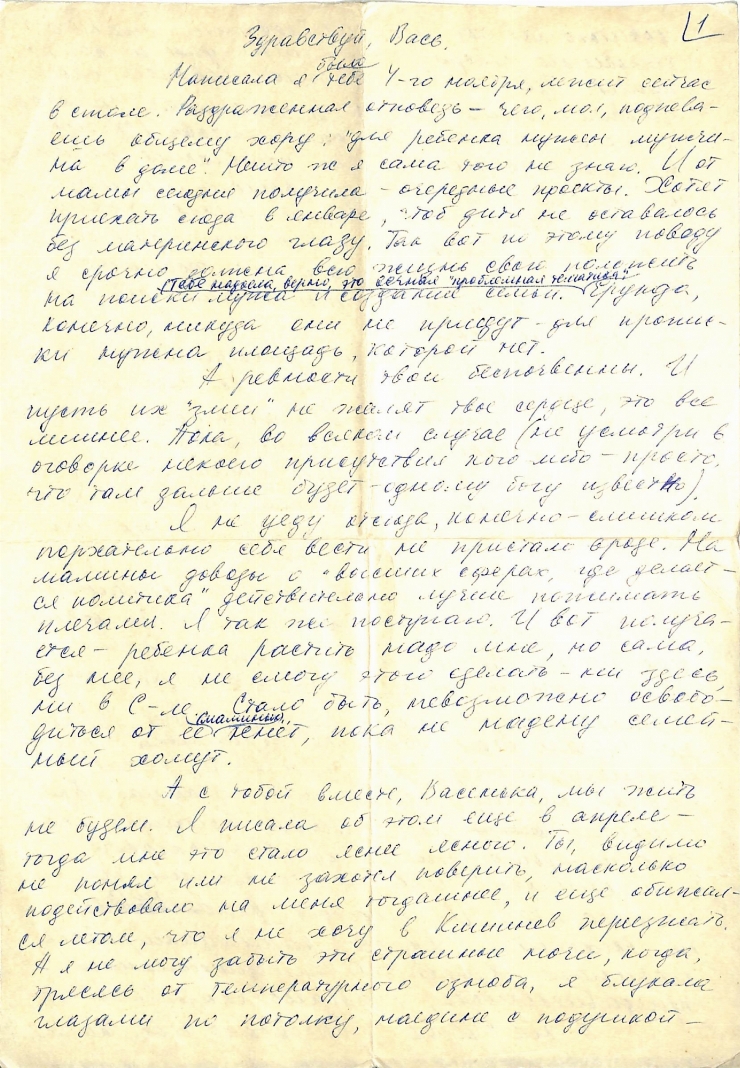 1
Здравствуй, Вась.
было
Написала я тебе 4-го ноября, лежит сейчас
в столе. Раздраженная отповедь – чего, мол, подпева-
ешь общему хору: "для ребенка нужен мужчи-
на в доме". Нешто ж я сама того не знаю. И от
мамы сегодня получила – очередные проекты. Хотят
приехать сюда в январе, чтоб дитя не оставалось
без материнского глазу. Так вот по этому поводу
я срочно должна всю жизнь свою положить
(Тебе надоела, верно, эта вечная "проблемная тематика".
на поиски мужа и создание семьи. Ерунда,
конечно, никуда они не приедут – для пропис-
ки нужна площадь, которой нет.
А ревности твои беспочвенны. И
пусть их "змии" не жалят твое сердце, это все
лишнее. Пока, во всяком случае (не усмотри в
оговорке некоего присутствия кого-либо – просто,
что там дальше будет – одному богу известно).
Я не уеду отсюда, конечно – слишком
подражательно себя вести не пристало вроде. На
мамины доводы о "высших сферах, где делает-
ся политика" действительно лучше пожимать
плечами. Я так же поступаю. И вот получа-
ется – ребенка растить надо мне, но сама,
без нее, я не смогу этого сделать – ни здесь,
ни в С-ле. Стало быть, невозможно освобо-
(маминых)
диться от её тенет, пока не надену семей-
ный хомут.
А с тобой вместе, Васенька, мы жить
не будем. Я писала об этом еще в апреле –
тогда мне это стало яснее ясного. Ты, видимо
не понял или не захотел поверить, насколько
подействовало на меня тогдашнее, и еще обижал-
ся летом, что я не хочу в Кишинев переезжать.
А я не могу забыть эти страшные ночи, когда,
трясясь от температурного озноба, я блуждала
глазами по потолку, наедине с подушкой –